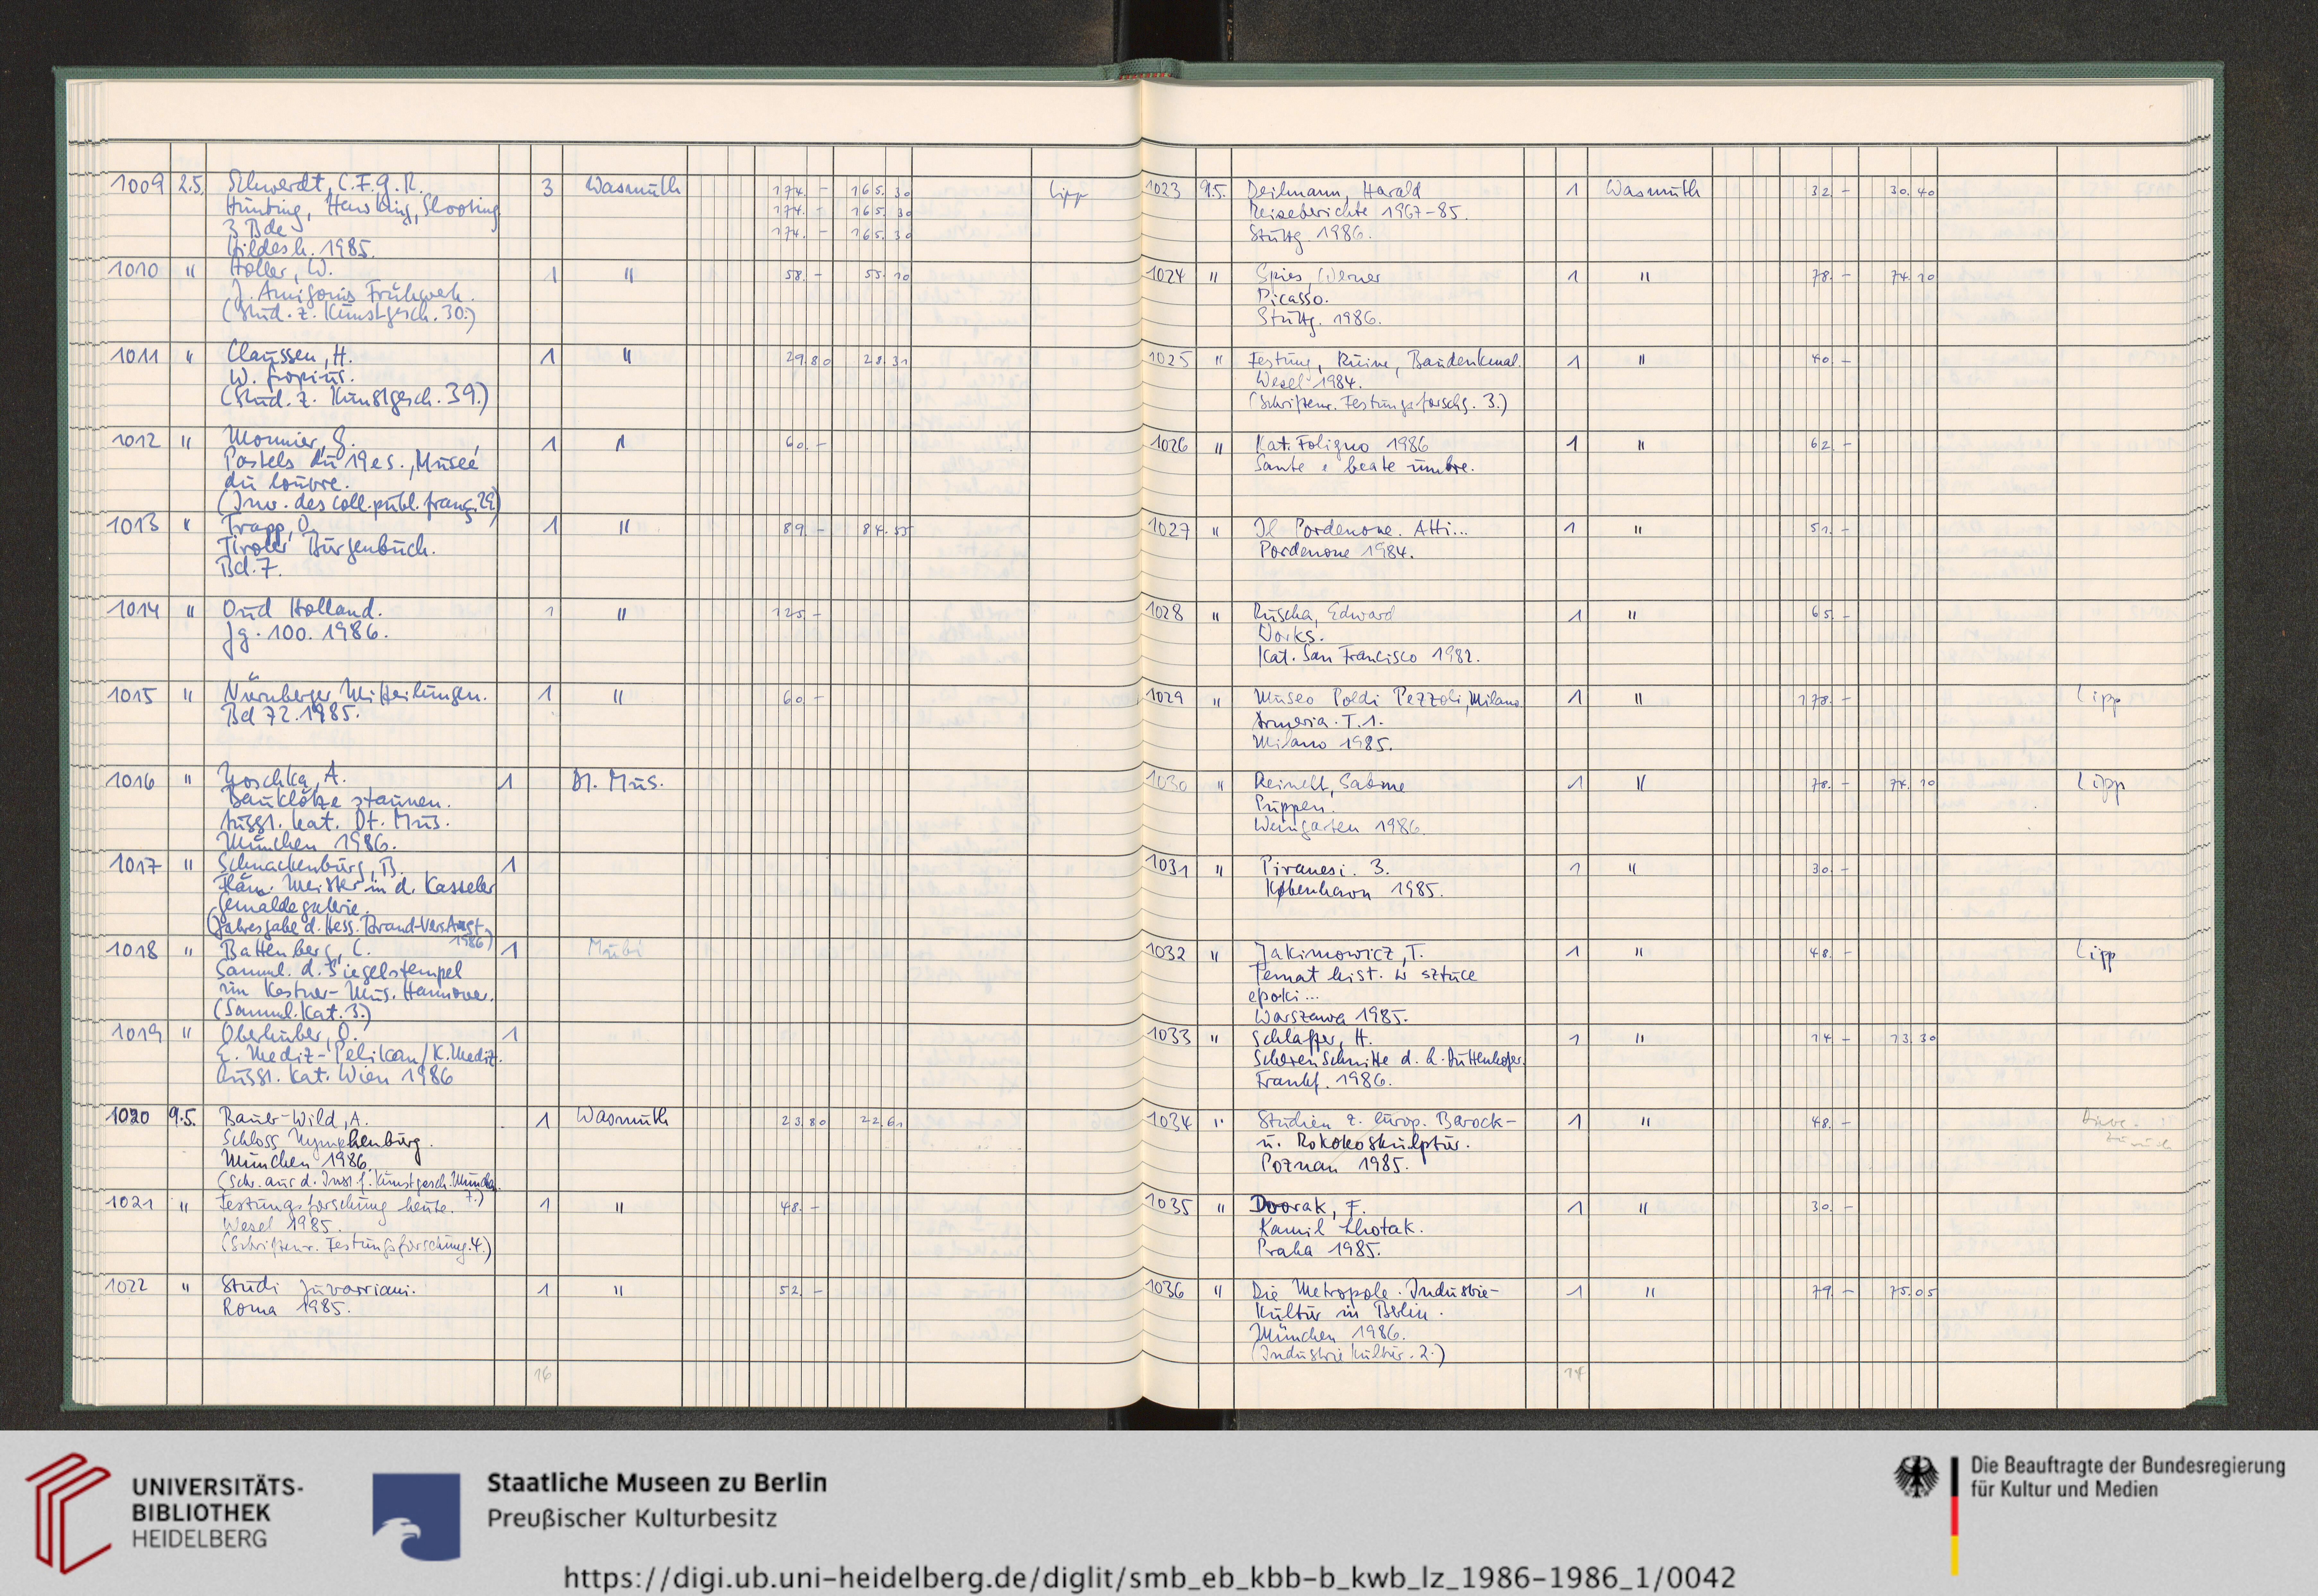 1009 2.5. Schwerdt, C.F.G.R. 3 Wasmuth 174. - 165.30 Lipp
Hunting, Hawking, Shooting 174. - 165.30
3 Bde 174. - 165.30
Hildesh. 1985.
1010 " Holler, W. 1 " 58. - 55.10
J. Amigonis Frühwerk.
(Stud. z. Kunstgesch. 30.)
1011 " Claussen, H. 1 " 29.80 28.31
W. Gropius.
(Stud. z. Kunstgesch. 39.)
1012 " Monnier, G. 1 " 60. -
Pastels du 19e s., Museé
du Louvre.
(Inv. des coll. publ. franç. 29)
1013 " Trapp, O. 1 " 89. - 84.55
Tiroler Burgenbuch.
Bd. 7.
1014 " Oud Holland. 1 " 125. -
Jg. 100. 1986.
1015 " Nürnberger Mitteilungen. 1 " 60. -
Bd 72. 1985.
1016 " Noschka, A. 1 Dt. Mus.
Bauklötze staunen.
Ausst. kat. Dt. Mus.
München 1986.
1017 " Schnackenburg, B. 1
Fläm. Meister in d. Kasseler
Gemäldegalerie.
(Jahresgabe d. Hess. Brand-Vers.Anst.
1986)
1018 " Battenberg, C. 1 Mubi
Samml. d. Siegelstempel
im Kestner-Mus. Hannover.
(Samml. Kat. 3.)
1019 " Oberhuber, O. 1
E. Mediz-Pelikan/K. Mediz.
Ausst. Kat. Wien 1986
1020 9.5. Bauer-Wild, A. 1 Wasmuth 23.80 22.61
Schloss Nymphenburg.
München 1986.
(Schr. aus d. Inst. f. Kunstgesch. München
7.)
1021 " Festungsforschung heute. 1 " 48. -
Wesel 1985.
(Schriftenr. Festungsforschung. 4.)
1022 " Studi Juvarriani. 1 " 52. -
Roma 1985.
16
1023 9.5. Deilmann, Harald 1 Wasmuth 32. - 30.40
Reiseberichte 1967-85.
Stuttg. 1986.
1024 " Spies, Werner 1 " 78. - 74.10
Picasso.
Stuttg. 1986.
1025 " Festung, Ruine, Baudenkmal. 1 " 40. -
Wesel 1984.
(Schriftenr. Festungsforschg. 3.)
1026 " Kat. Foligno 1986 1 " 62. -
Sante e beate umbre.
1027 " Il Pordenone. Atti... 1 " 51. -
Pordenone 1984.
1028 " Ruscha, Edward 1 " 65. -
Works.
Kat. San Francisco 1982.
1029 " Museo Poldi Pezzoli, Milano 1 " 178. - Lipp
Armeria. T. 1.
Milano 1985.
1030 " Reinelt, Sabine 1 " 78. - 74.10 Lipp
Puppen.
Weingarten 1986.
1031 " Piranesi. 3. 1 " 30. -
København 1985.
1032 " Jakimowicz, T. 1 " 48. - Lipp
Temat hist. w sztuce
epoki ...
Warszawa 1985.
1033 " Schlaffer, H. 1 " 14 - 13.30
Scherenschnitte d. L. Duttenhofer.
Frankf. 1986.
1034 " Studien z. europ. Barock- 1 " 48. -
u. Rokokoskulptur. zurück
Poznan 1985.
1035 " Dvorak, F. 1 " 30. -
Kamil Lhotak.
Praha 1985.
1036 " Die Metropole. Industrie- 1 " 79. - 75.05
kultur in Berlin.
München 1986.
(Industriekultur. 2.)
14
UNIVERSITÄTS-
BIBLIOTHEK
HEIDELBERG
Staatliche Museen zu Berlin
Preußischer Kulturbesitz
Die Beauftragte der Bundesregierung
für Kultur und Medien
https://digi.ub.uni-heidelberg.de/diglit/smb_eb_kbb-b_kwb_lz_1986-1986_1/0042